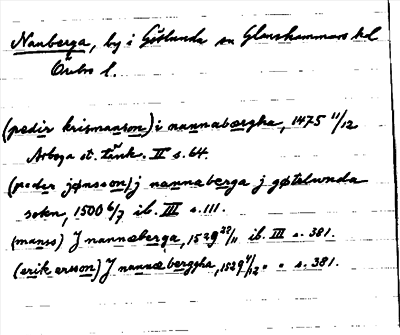 Nanberga, by i Götlunda sn Glanshammars hd
Örebro l.
(pedir krismanson) i nannabærgha, 1475 11/12
Arboga st. tänk. II s. 64.
(peder jønsson) j nannaberga j gøtelunda
soken, 1500 6/7 ib. III s. 111.
(manss) J nannæberga, 1529 22/11 ib. III s. 381.
(erik ersson) J nannæberggha, 1529 4/12 " " s. 381.